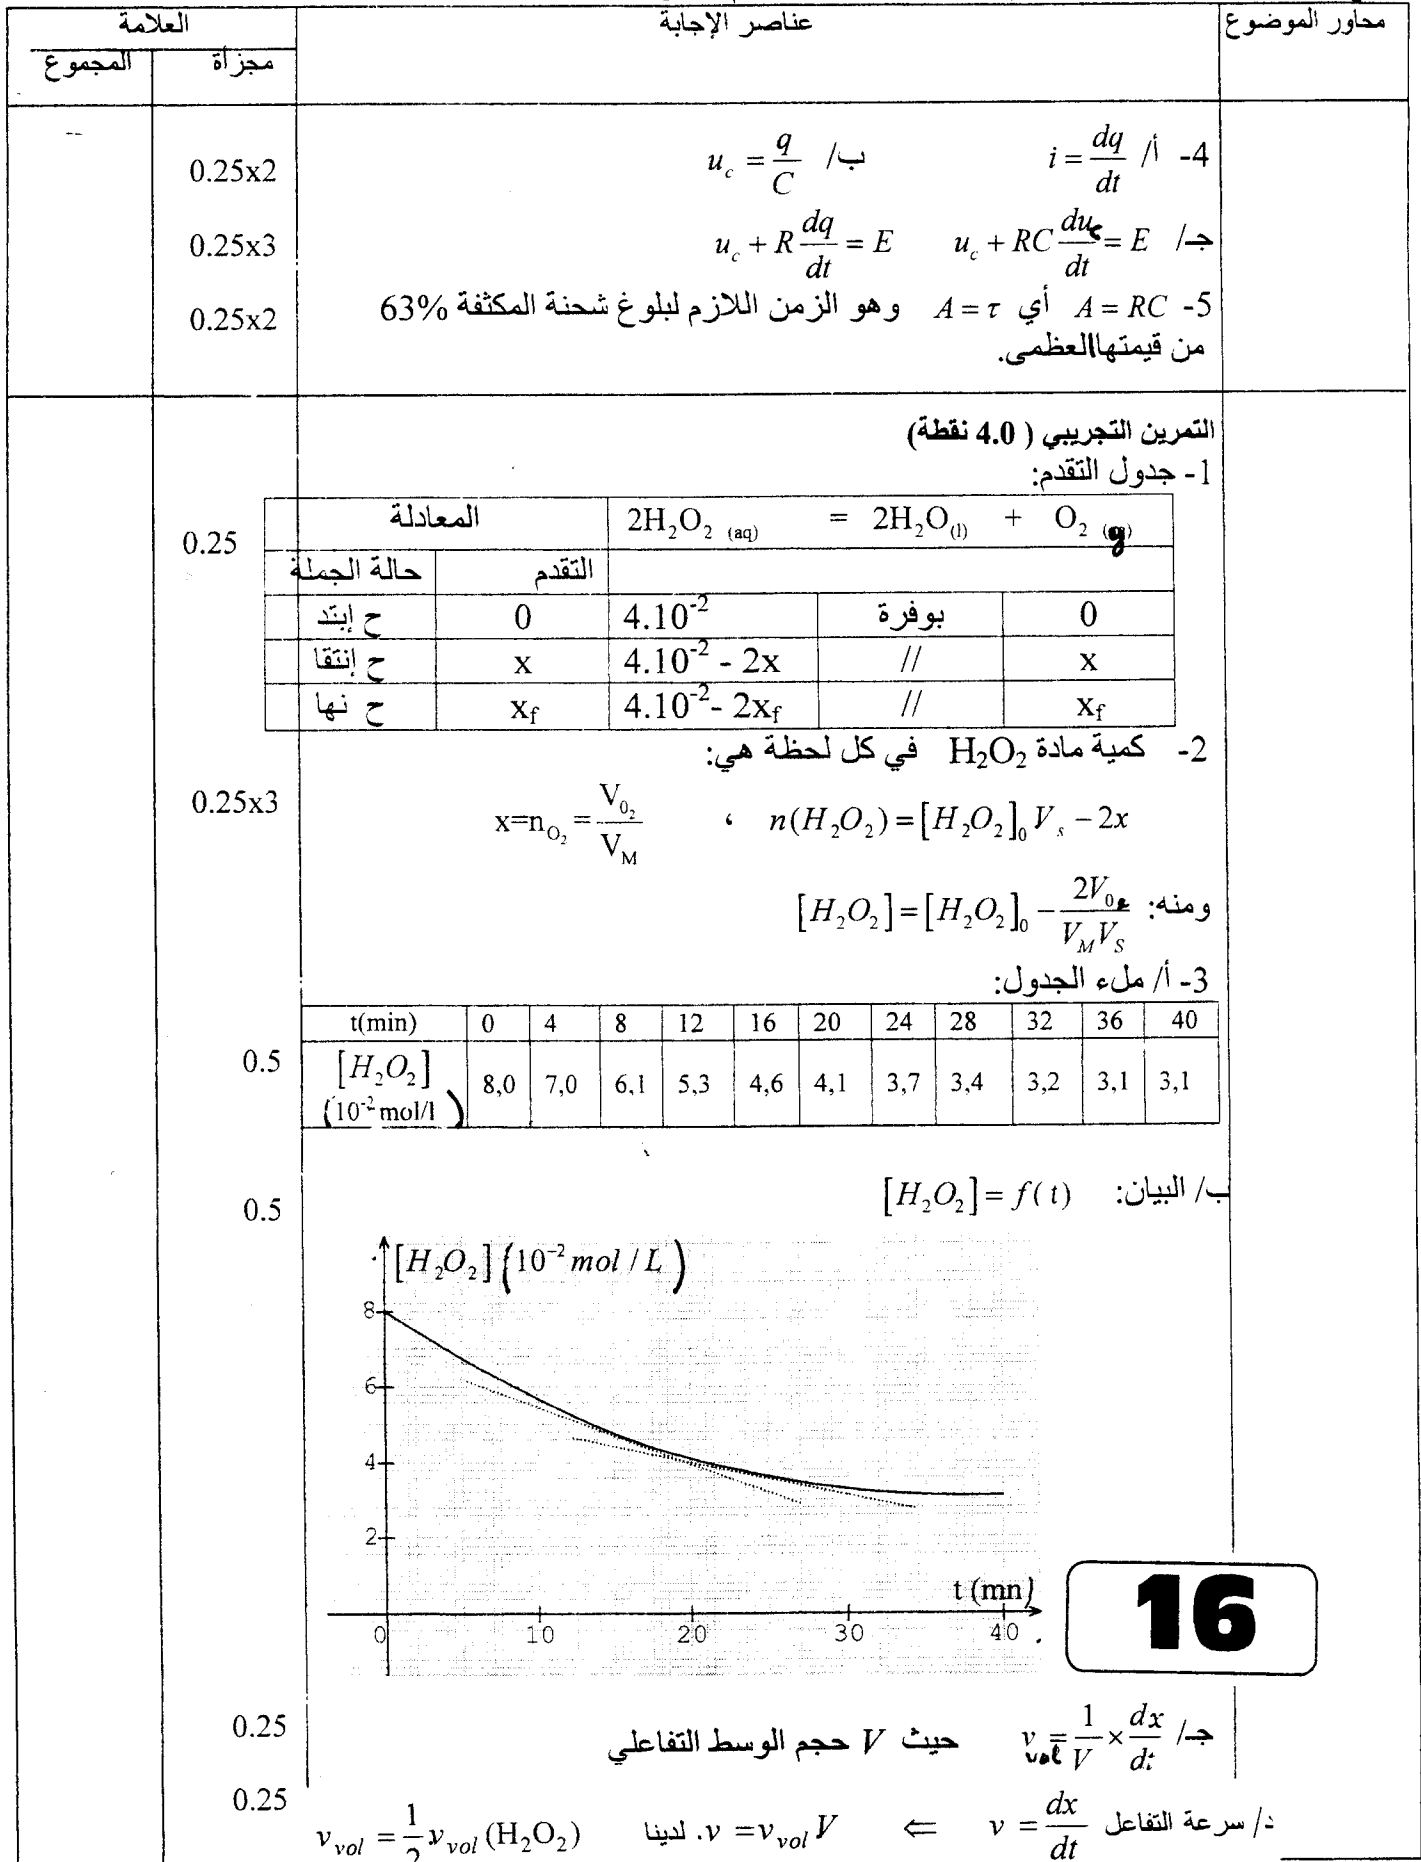 محاور الموضوع | عناصر الإجابة | العلامة
مجزأة | المجموع
4- أ/ i = dq/dt ب/ u_c = q/C 0.25x2
جـ/ u_c + RC du_c/dt = E u_c + R dq/dt = E 0.25x3
5- A = RC أي A = τ وهو الزمن اللازم لبلوغ شحنة المكثفة 63% 0.25x2
من قيمتها العظمى.
التمرين التجريبي ( 4.0 نقطة)
1- جدول التقدم:
0.25
المعادلة | 2H₂O₂ (aq) = 2H₂O(l) + O₂ (g)
حالة الجملة | التقدم
ح إبتد | 0 | 4.10⁻² | بوفرة | 0
ح إنتقا | x | 4.10⁻² - 2x | // | x
ح نها | x_f | 4.10⁻² - 2x_f | // | x_f
2- كمية مادة H₂O₂ في كل لحظة هي:
n(H₂O₂) = [H₂O₂]₀ V_s − 2x ، x = n_O₂ = V_0₂/V_M 0.25x3
ومنه: [H₂O₂] = [H₂O₂]₀ − 2V_0₂/(V_M V_S)
3- أ/ ملء الجدول:
t(min) | 0 | 4 | 8 | 12 | 16 | 20 | 24 | 28 | 32 | 36 | 40
[H₂O₂] (10⁻² mol/l) | 8,0 | 7,0 | 6,1 | 5,3 | 4,6 | 4,1 | 3,7 | 3,4 | 3,2 | 3,1 | 3,1
0.5
ب/ البيان: [H₂O₂] = f(t) 0.5
[H₂O₂] (10⁻² mol / L)
8
6
4
2
t (mn)
0 10 20 30 40
16
جـ/ v_vol = 1/V × dx/dt حيث V حجم الوسط التفاعلي 0.25
د/ سرعة التفاعل v = dx/dt ⇐ v = v_vol V. لدينا v_vol = 1/2 v_vol (H₂O₂) 0.25